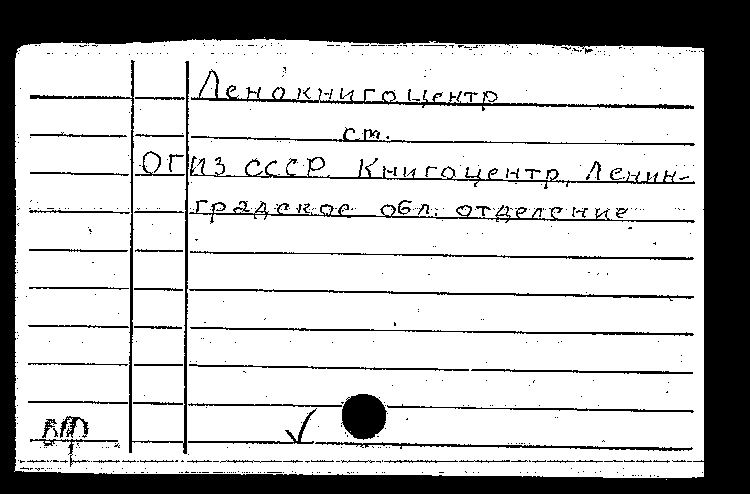 Ленокнигоцентр
ст.
ОГИЗ СССР. Книгоцентр, Ленин-
градское обл. отделение